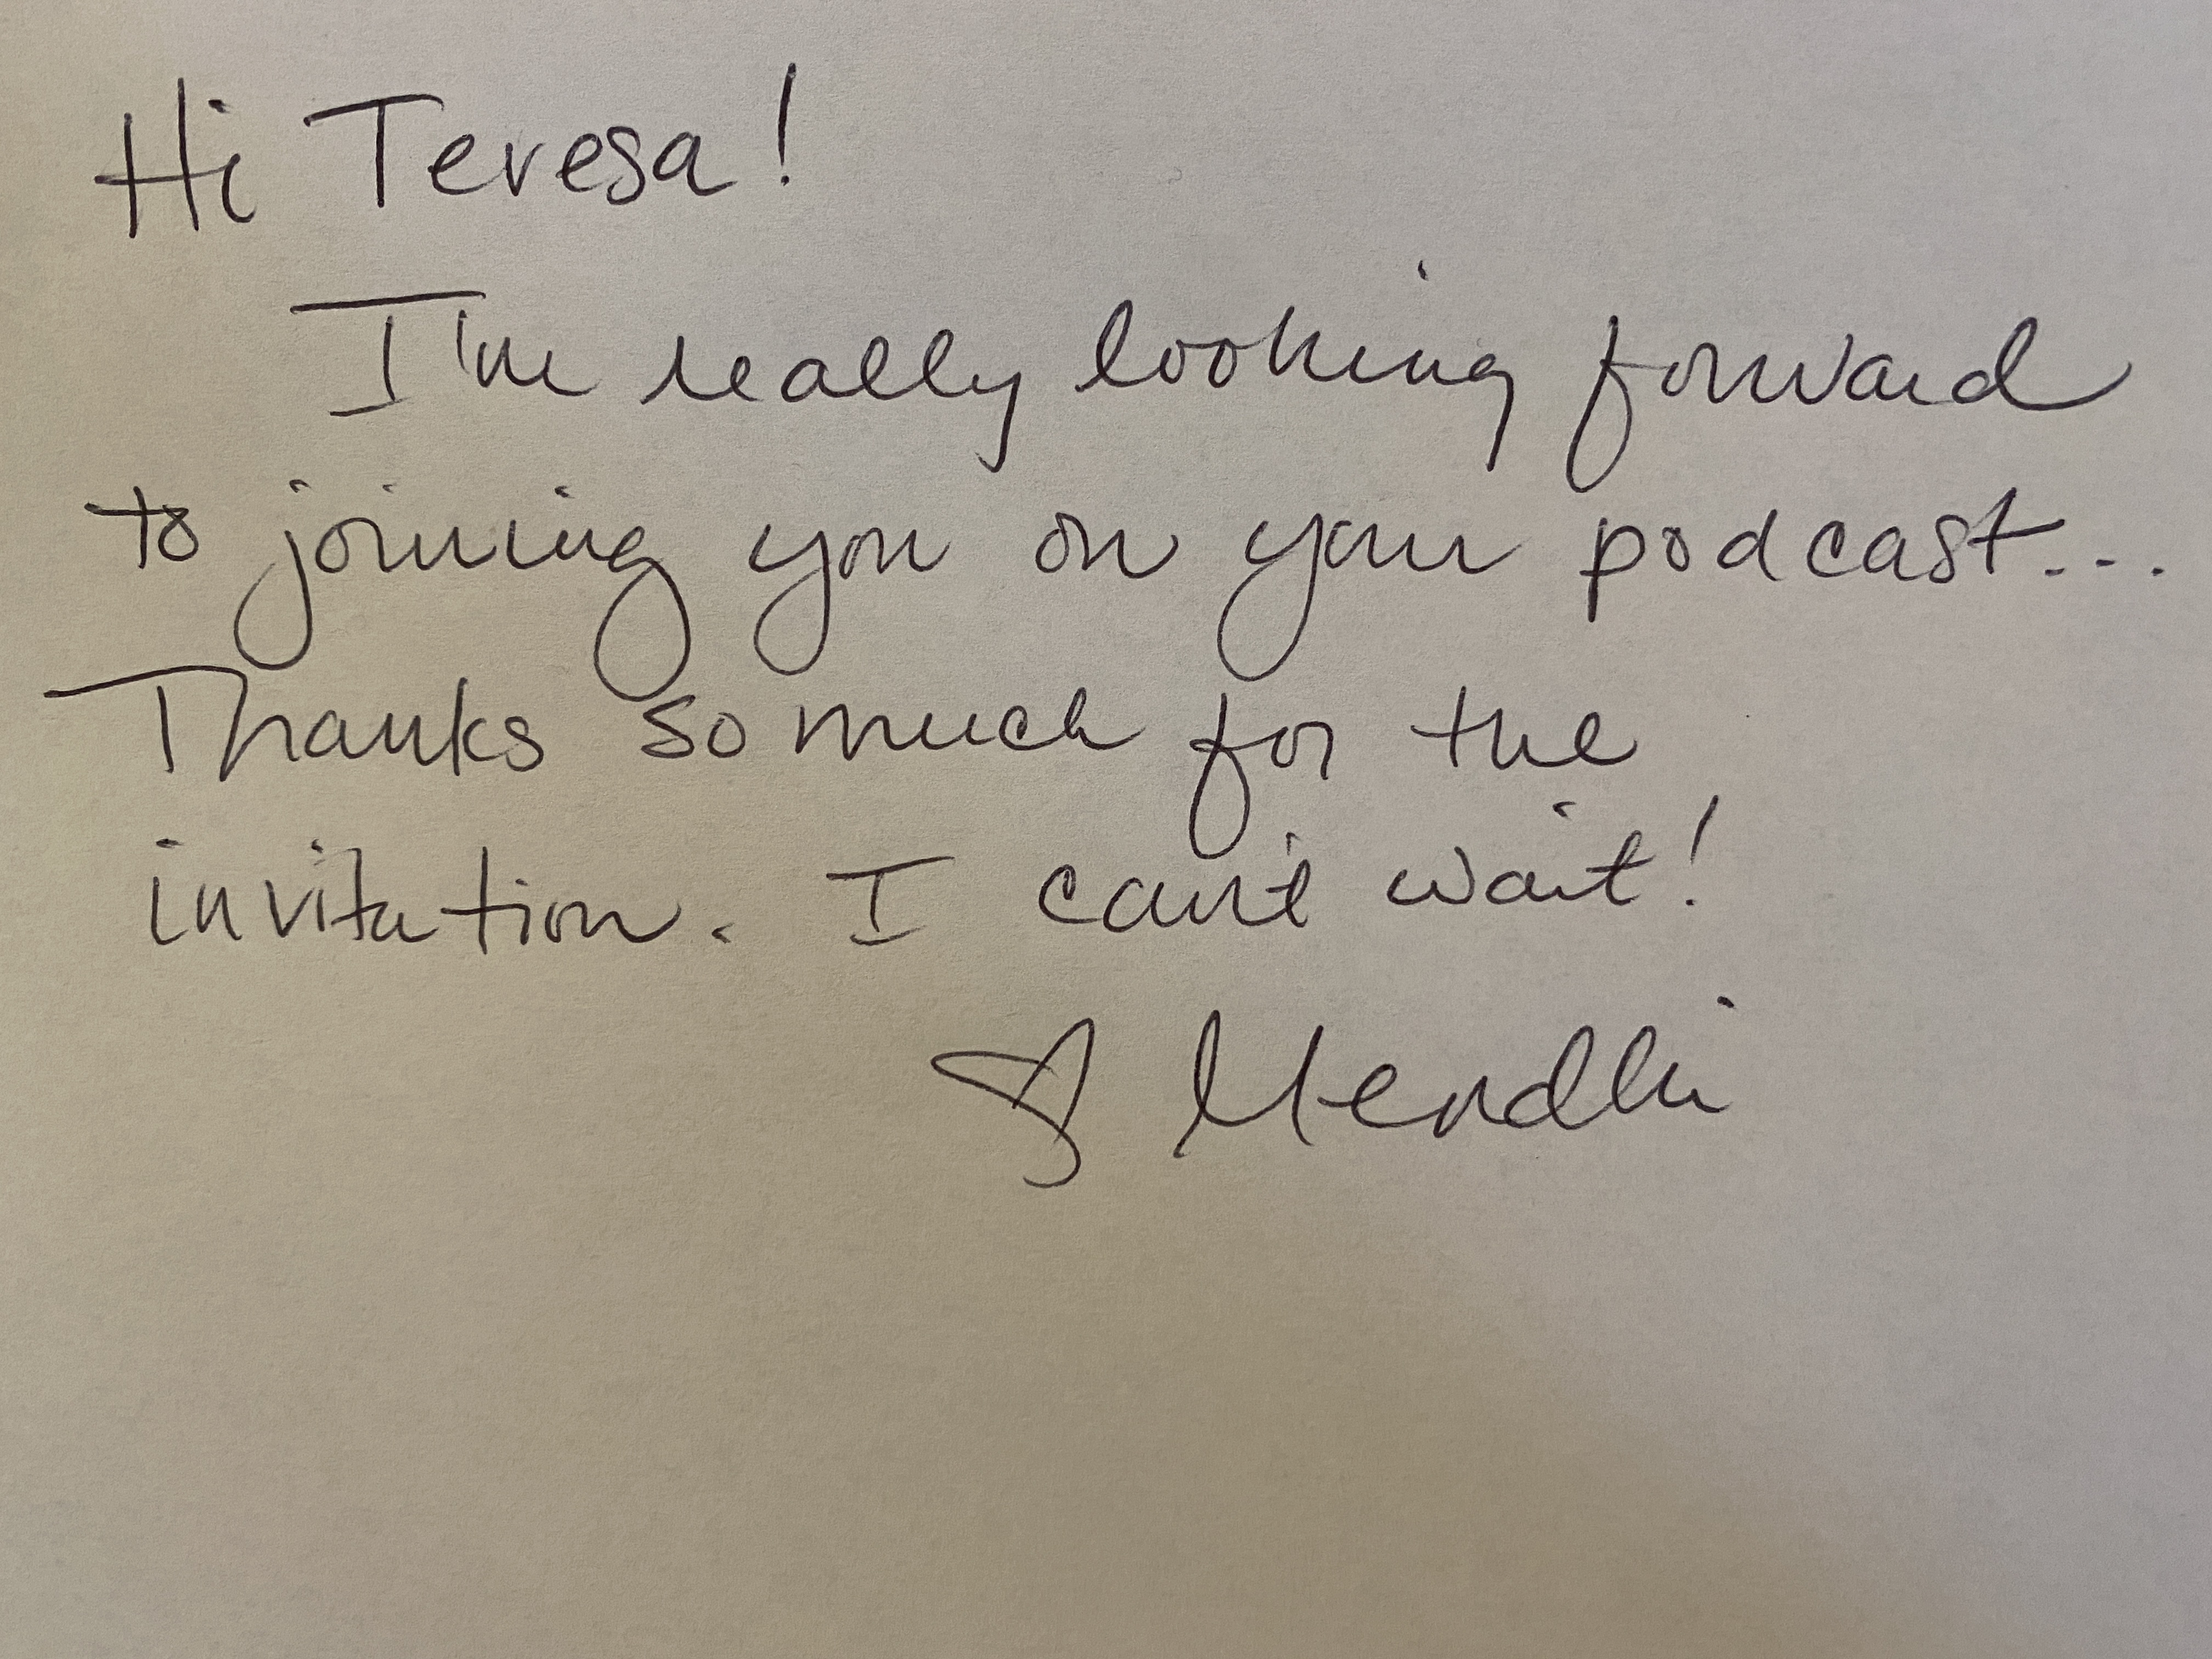 Hi Teresa!
I'm really looking forward
to joining you on your podcast...
Thanks so much for the
invitation. I can't wait!